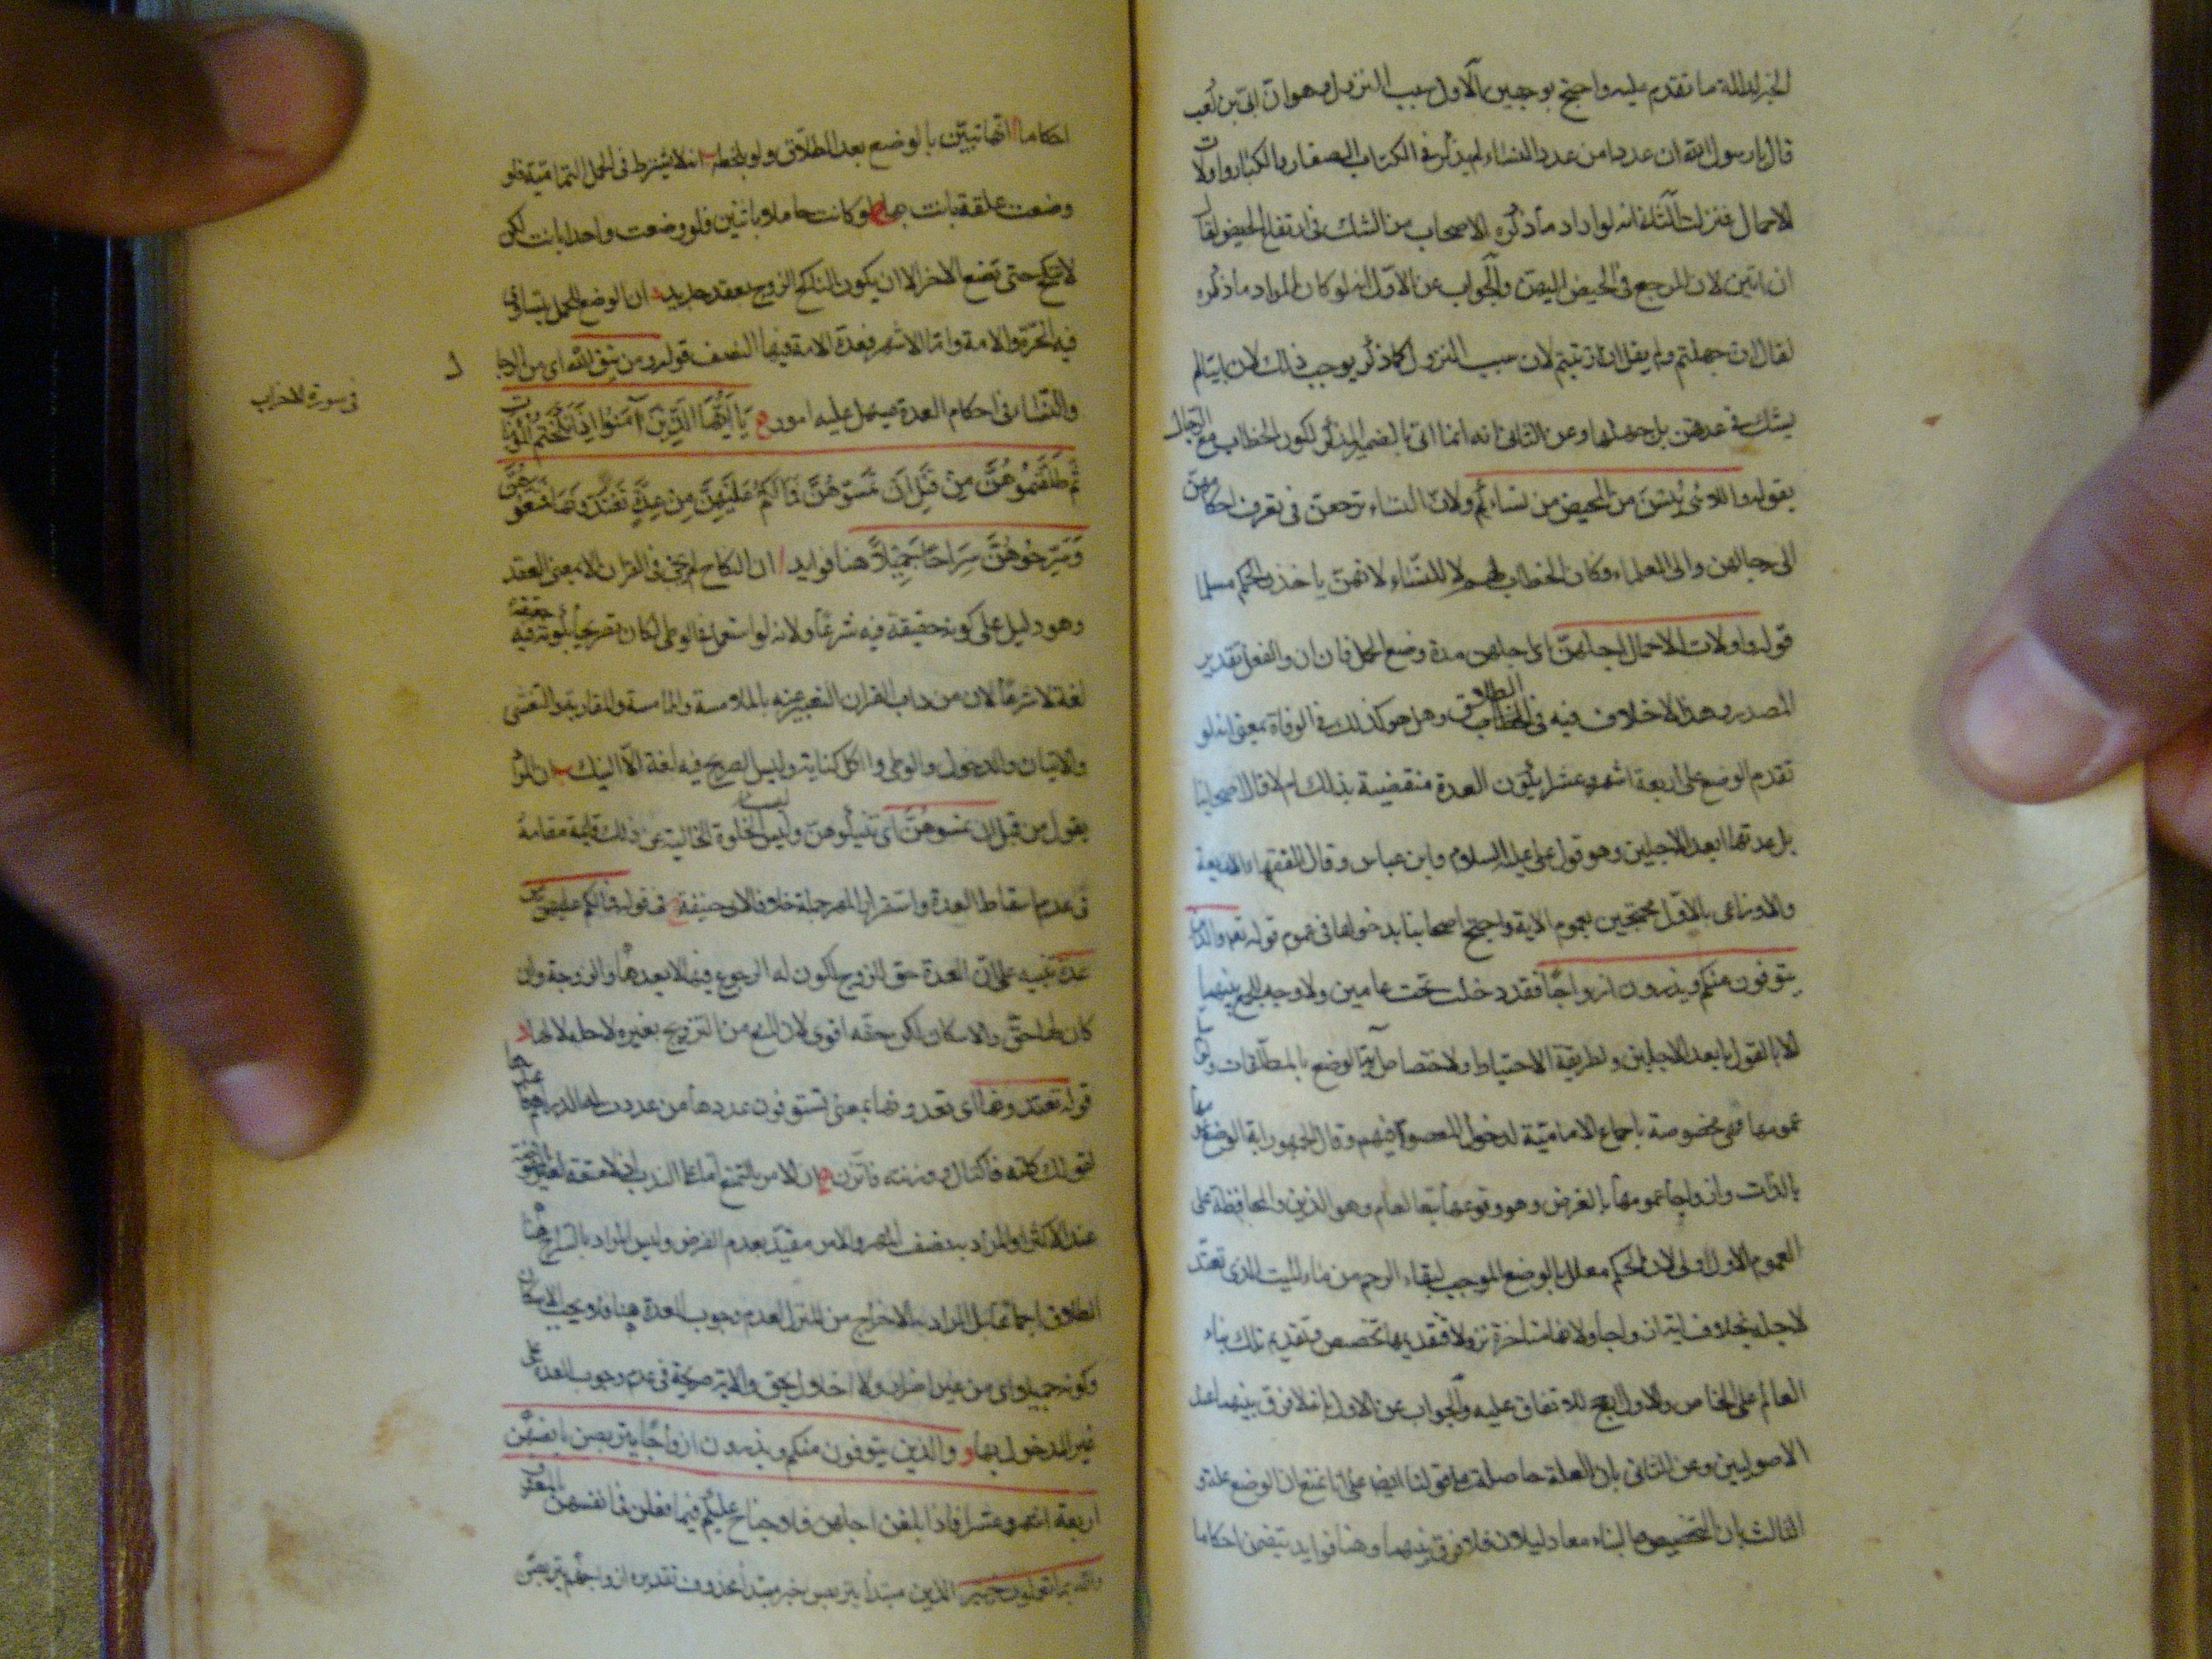 الخبر لدلالة ما تقدم عليه واحتج بوجهين الاول سبب النزول وهو ان ابى بن كعب
قال يا رسول الله ان عددا من عدد النساء لم يذكر فى الكتاب الصغار والكبار واولات
الاحمال فنزلت الثانى انه لو اراد ما ذكره الاصحاب من الشك فى ارتفاع الحيض لقال
ان ارتبتن لان المرجع فى الحيض اليهن والجواب عن الاول انه لو كان المراد ما ذكره
لقال ان جهلتم ولم يقل ان ارتبتم لان سبب النزول كما ذكر يوجب ذلك لان ابيا لم
يشك فى عدتهن بل جهلها وعن الثانى انه انما اتى بالضمير المذكر لكون الخطاب مع الرجال
بقوله واللائى يئسن من المحيض من نسائكم ولان النساء ترجعن فى تعرف احكامهن
الى رجالهن والى العلماء وكان الخطاب لهم لا للنساء لانهن ياخذن الحكم مسلما
قوله واولات الاحمال اجلهن اى اجلهن مدة وضع الحمل فان ان والفعل بتقدير
المصدر وهذا لا خلاف فيه فى الطلاق وهل هو كذلك فى الوفاة بمعنى انه لو
تقدم الوضع على اربعة اشهر وعشرا يكون العدة منقضية بذلك ام لا قال اصحابنا
بل عدتها ابعد الاجلين وهو قول على عليه السلام وابن عباس وقال الفقهاء الاربعة
والاوزاعى بالاول محتجين بعموم الاية واحتج اصحابنا بدخولها فى عموم قوله تعالى والذين
يتوفون منكم ويذرون ازواجا فقد دخلت تحت عامين ولا وجه للجمع بينهما
الا بالقول بابعد الاجلين ولطريقة الاحتياط ولاختصاص آية الوضع بالمطلقات
عمومها فهى مخصوصة باجماع الامامية لدخول المعصوم فيهم وقال الجمهور اية الوضع
بالذات وازواجا عمومها بالعرض وهو وقوعها تبعا لعام وهو الذين والمحافظة على
العموم الاول اولى لان الحكم معلل بالوضع الموجب لبقاء الرحم من ماء الميت الذى تعتد
لاجله بخلاف اية ازواجا ولانها متاخرة نزولا فتقديمها تخصص وتقديم تلك بناء
العام على الخاص والاول ارجح للاتفاق عليه والجواب عن الاول بانه لا فرق بينهما عند
الاصوليين وعن الثانى بان العلة حاصلة على قولنا ايضا على انا نمنع ان الوضع علة و
الثالث بان التخصيص والبناء معا دليلان فلا فرق بينهما وهنا فوايد تتضمن احكاما
احكاما انها تبين بالوضع بعد الطلاق ولو بلحظة انه لا يشترط فى الحمل التمامية فلو
وضعت علقة بانت بها لو كانت حاملا باثنين فلو وضعت واحدا بانت لكن
لا تنكح حتى تضع الاخر الا ان يكون الناكح الزوج بعقد جديد ان الوضع للحمل يتساوى
فيه الحرة والامة واما الاشهر فعدة الامة فيها النصف قوله ومن يتق الله اى من الرجال
فى سورة الاحزاب
والنساء فى احكام العدة يسهل عليه امور يَا أَيُّهَا الَّذِينَ آمَنُوا إِذَا نَكَحْتُمُ الْمُؤْمِنَاتِ
ثُمَّ طَلَّقْتُمُوهُنَّ مِنْ قَبْلِ أَنْ تَمَسُّوهُنَّ فَمَا لَكُمْ عَلَيْهِنَّ مِنْ عِدَّةٍ تَعْتَدُّونَهَا فَمَتِّعُوهُنَّ
وَسَرِّحُوهُنَّ سَرَاحًا جَمِيلًا هنا فوايد ان النكاح لم يجئ فى القران الا بمعنى العقد
وهو دليل على كونه حقيقة فيه شرعا ولانه لو استعمل فى الوطى لكان تصريحا لكونه حقيقة فيه
لغة لا شرعا لان من داب القران التعبير عنه بالملامسة والمماسة والمقاربة والتغشى
والاتيان والدخول والوطى والكل كناية وليس الصريح فيه لغة الا النيك ان المراد
بقوله من قبل ان تمسوهن اى تنيكوهن وليس الخلوة الخالية عن ذلك قايمة مقامه
فى عدم اسقاط العدة واستقرار المهر جملة خلافا لابى حنيفة فى قوله فما لكم عليهن من
عدة تنبيه على ان العدة حق للزوج لكون له الرجوع فيها لا بعدها والزوجة وان
كان لها حق والاسكان لكن حقه اقوى لان المنع من التزويج بغيره لاجله لا لها
قوله تعتدونها اى تعدونها بمعنى تستوفون عددها من عددت له الدراهم فاعتدها
كقولك كلته فاكتال ووزنته فاتزن ان الامر بالتمتع اما على الندب اذ لا متعة لغير المفوضة
عند الاكثر او المراد به نصف المهر والامر مقيد بعدم الفرض وليس المراد بالتسريح هنا
الطلاق اجماعا بل المراد به الاخراج من المنزل لعدم وجوب العدة هنا فلا يجب الاسكان
وكونه جميلا اى من غير اضرار ولا اخلال بحق والاية صريحة فى عدم وجوب العدة على
غير المدخول بها والذين يتوفون منكم ويذرون ازواجا يتربصن بانفسهن
اربعة اشهر وعشرا فاذا بلغن اجلهن فلا جناح عليكم فيما فعلن فى انفسهن بالمعروف
والله بما تعملون خبير الذين مبتدأ يتربصن خبر مبتدأ محذوف تقديره ازواجهم يتربصن